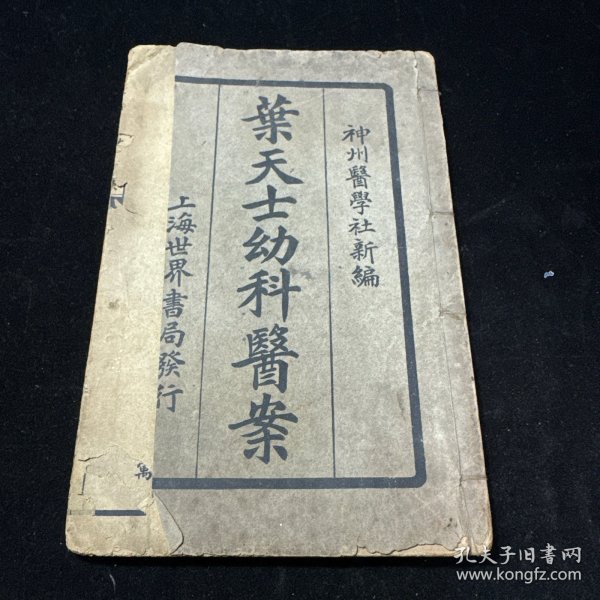 神州醫學社新編
葉天士幼科醫案
上海世界書局發行
萬
孔夫子旧书网
www.kongfz.com